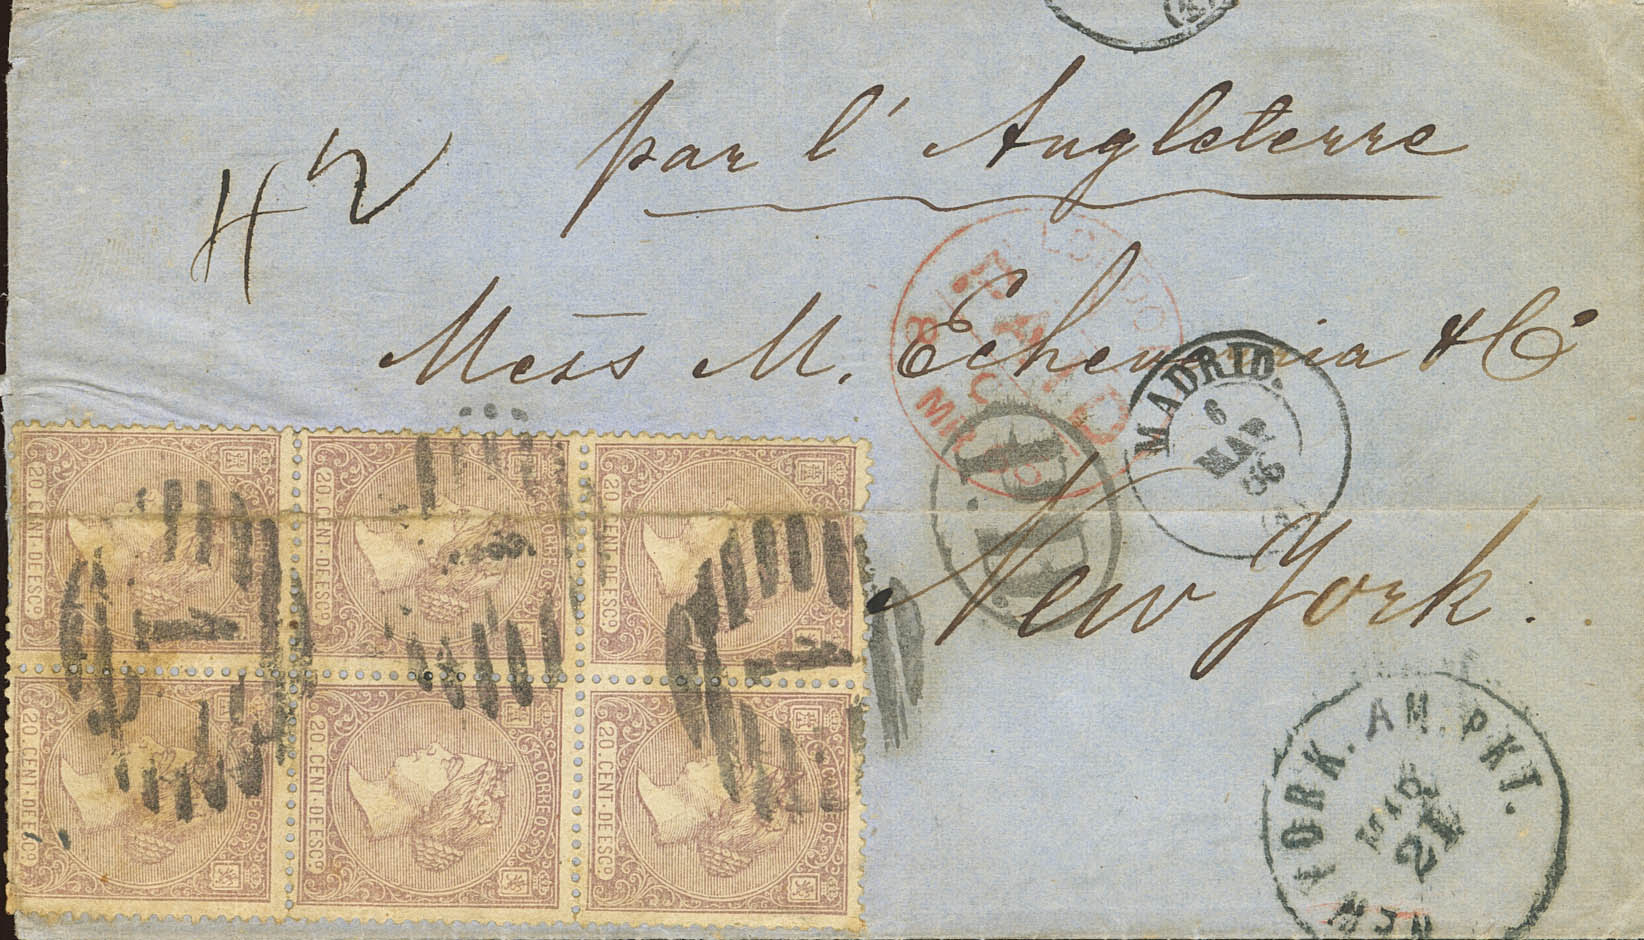 par l'Angleterre
42
Mess M. Echeverria & Cº
New York.
LONDON
PAID
MADRID.
6
MAR
66
(1)
P.D.
20 CENT. DE ESCº
CORREOS
20 CENT. DE ESCº
CORREOS
20 CENT. DE ESCº
20 CENT. DE ESCº
20 CENT. DE ESCº
CORREOS
20 CENT. DE ESCº
NEW YORK. AM. PKT.
MAR
21